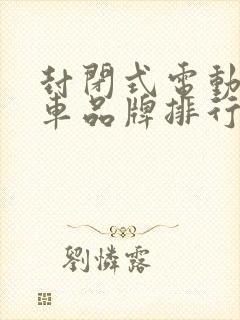 封閉式電動
車品牌排行
劉憐露